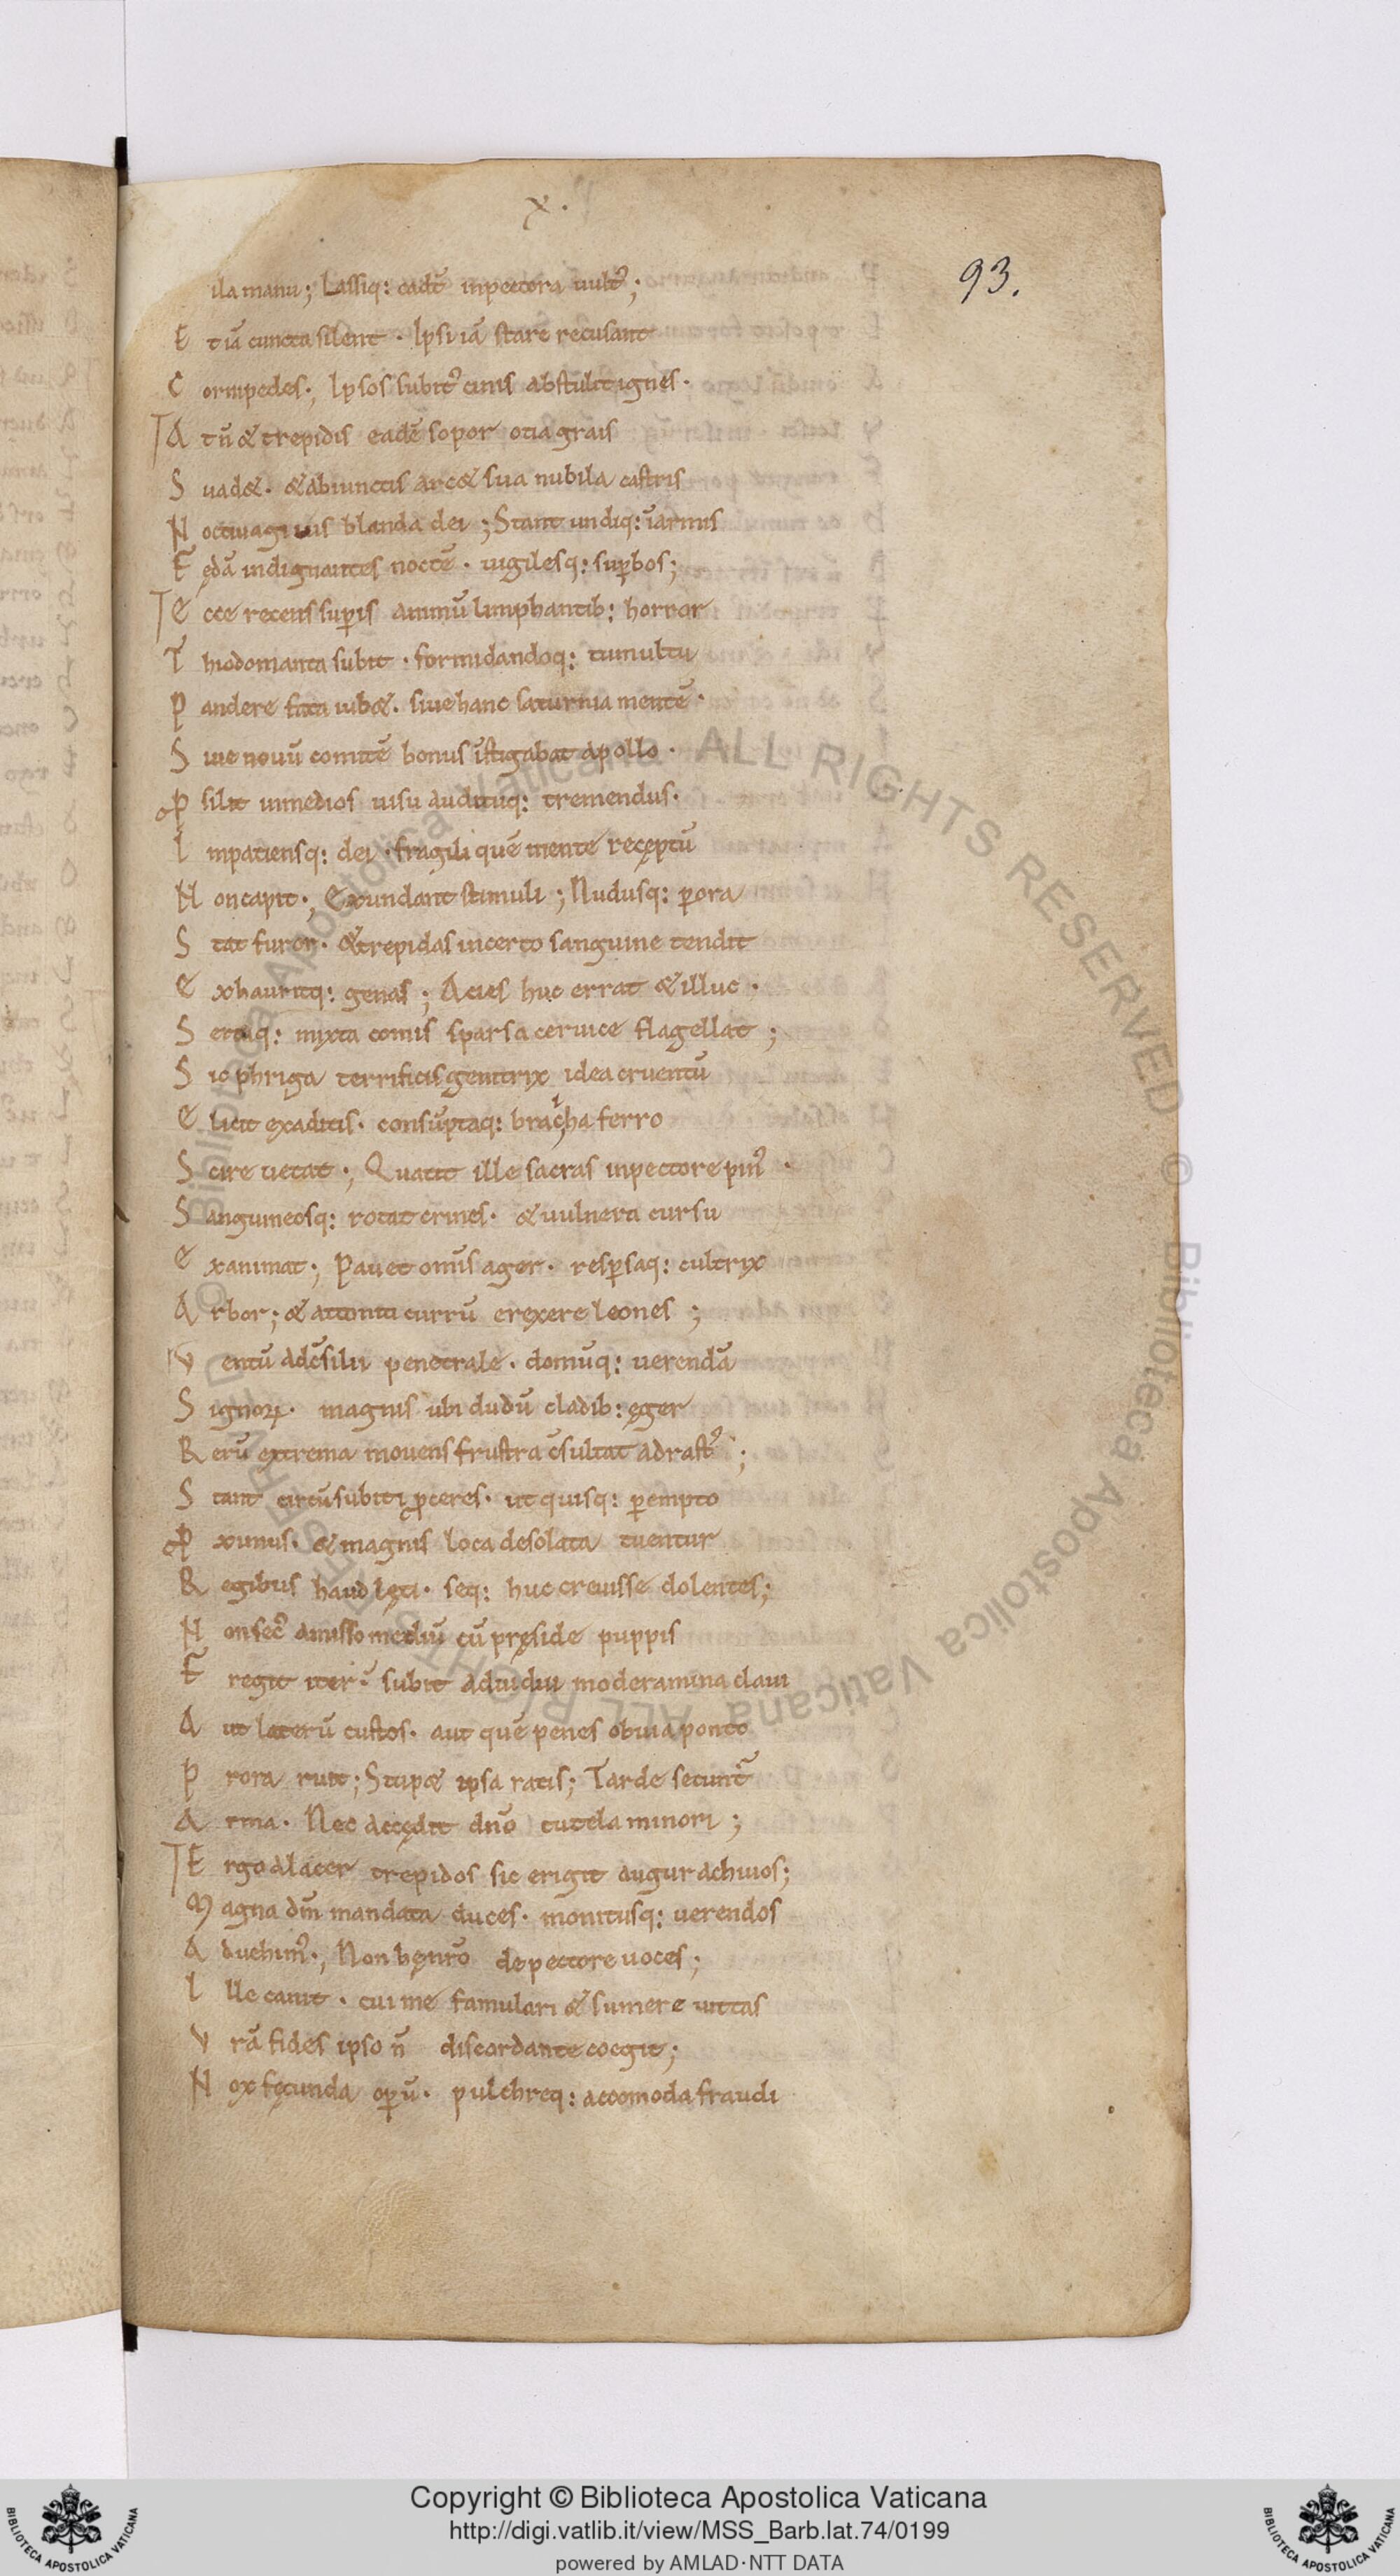 x.
93.
ila manu; Lassiq: cadt̄ inpectora uult᾿;
E t iā cuncta silent · Ipsi iā stare recusant
C ornipedes·, Ipsos subit᾿ cinis abstulit ignes·
A t n̄ & trepidis eadē sopor otia grais
S uad&· &abiunctis arc& sua nubila castris
N octiuagi uis blanda dei ; Stant undiq: īarmis
F ędā indignantes noctē · uigilesq: suꝑbos;
E cce recens suꝑis animū limphantib: horror
T hiodomanta subit · formidandoq: tumultu
P andere fata iub&· siue hanc saturnia mentē·
S iue nouū comitē bonus īstigabat apollo·
Ꝓ silit inmedios uisu audituq: tremendus·
I mpatiensq: dei · fragili quē mente recęptū
N oncapit·, Exundant stimuli ; Nudusq: ꝑora
S tat furor· &trepidas incerto sanguine tendit
E xhauritq: genas ; Acies huc errat &illuc ·
S ertaq: mixta comis sparsa ceruice flagellat ;
S ic phriga terrificis genitrix idea cruentū
E licit exaditis· consūptaq: brachia ferro
S cire uetat·, Quatit ille sacras inpectore pin᾿ ·
S anguineosq: rotat crines· &uulnera cursu
E xanimat·, Pauet omīs ager· resꝑsaq: cultrix
A rbor; & attoniti currū erexere leones ;
V entū adc̄silii penetrale· domūq: uerendā
S ignoꝝ· magnis ubi dudū cladib: ęger
R erū extrema mouens frustra c̄sultat adrast᾿ ;
S tant circūsubiti ꝓceres· ut quisq: ꝑempto
Ꝓ ximus· &magnis loca desolata tuentur
R egibus haud lęti· seq: huc creuisse dolentes;
N onsec᾿ amisso mediū cū pręside puppis
F regit iter·̄ subit adiudui moderamina claui
A ut laterū custos· aut quē penes obuia ponto
P rora ruit; Stup& ipsa ratis; Tarde secunt᾿
A rma· Nec accędit dn̄o tutela minori ;
E rgo alacer trepidos sic erigit augur achiuos;
M agna dm̄ mandata duces· monitusq: uerendos
A duehim᾿·, Non hęnr̄o depectore uoces;
I lle canit · cui me famulari &sumere uittas
V rā fides ipso n̄ discordante coegit;
N ox fęcunda oꝑū· pulchreq: accomoda fraudi
Copyright © Biblioteca Apostolica Vaticana
http://digi.vatlib.it/view/MSS_Barb.lat.74/0199
powered by AMLAD·NTT DATA